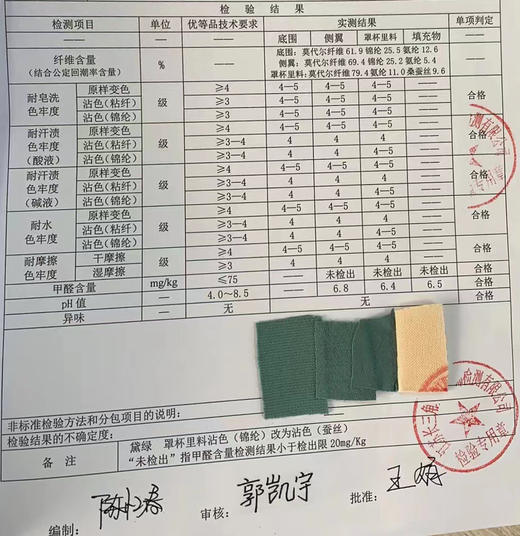 检 验 结 果
检测项目 单位 优等品技术要求 实测结果 单项判定
底围 侧翼 罩杯里料 填充物
纤维含量
(结合公定回潮率含量)
% —— 底围：莫代尔纤维 61.9 锦纶 25.5 氨纶 12.6
侧翼：莫代尔纤维 69.4 锦纶 25.2 氨纶 5.4
罩杯里料：莫代尔纤维79.4 氨纶11.0 桑蚕丝9.6
耐皂洗色牢度 级 合格
原样变色 ≥4 4—5 4—5 4—5 ——
沾色(粘纤) ≥3 4—5 4—5 4—5 ——
沾色(锦纶) ≥3 4—5 4—5 4—5 ——
耐汗渍色牢度(酸液) 级 合格
原样变色 ≥4 4—5 4—5 4—5 ——
沾色(粘纤) ≥3—4 4 4 4 ——
沾色(锦纶) ≥3—4 4 4 4 ——
耐汗渍色牢度(碱液) 级 合格
原样变色 ≥4 4—5 4—5 4—5 ——
沾色(粘纤) ≥3—4 4 4 4 ——
沾色(锦纶) ≥3—4 4 4 4 ——
耐水色牢度 级 合格
原样变色 ≥4 4—5 4—5 4—5 ——
沾色(粘纤) ≥3—4 4 4 4 ——
沾色(锦纶) ≥3—4 4 4 4 ——
耐摩擦色牢度 级 合格
干摩擦 ≥4 4—5 4—5 4—5 ——
湿摩擦 ≥3—4 4 4 4 ——
甲醛含量 mg/kg ≤75 —— 未检出 未检出 未检出 合格
pH 值 —— 4.0～8.5 —— 6.8 6.4 6.5 合格
异味 —— 无 无 无 合格
非标准检验方法和分包项目的说明：
检验结果的不确定度：
备 注 黛绿 罩杯里料沾色（锦纶）改为沾色（蚕丝）
“未检出”指甲醛含量检测结果小于检出限 20mg/Kg
编制： 审核： 郭凯宇 批准：